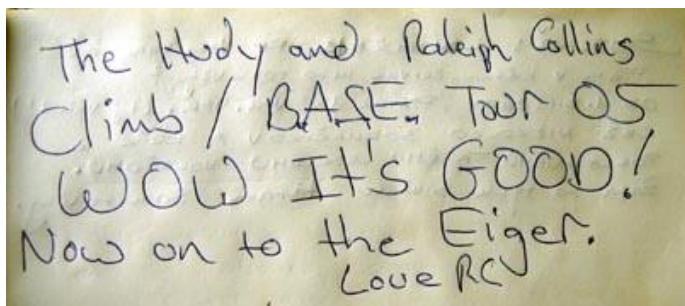 The Hudy and Raleigh Collins
Climb / B.A.S.E. Tour 05
WOW It's GOOD!
Now on to the Eiger.
Love RC